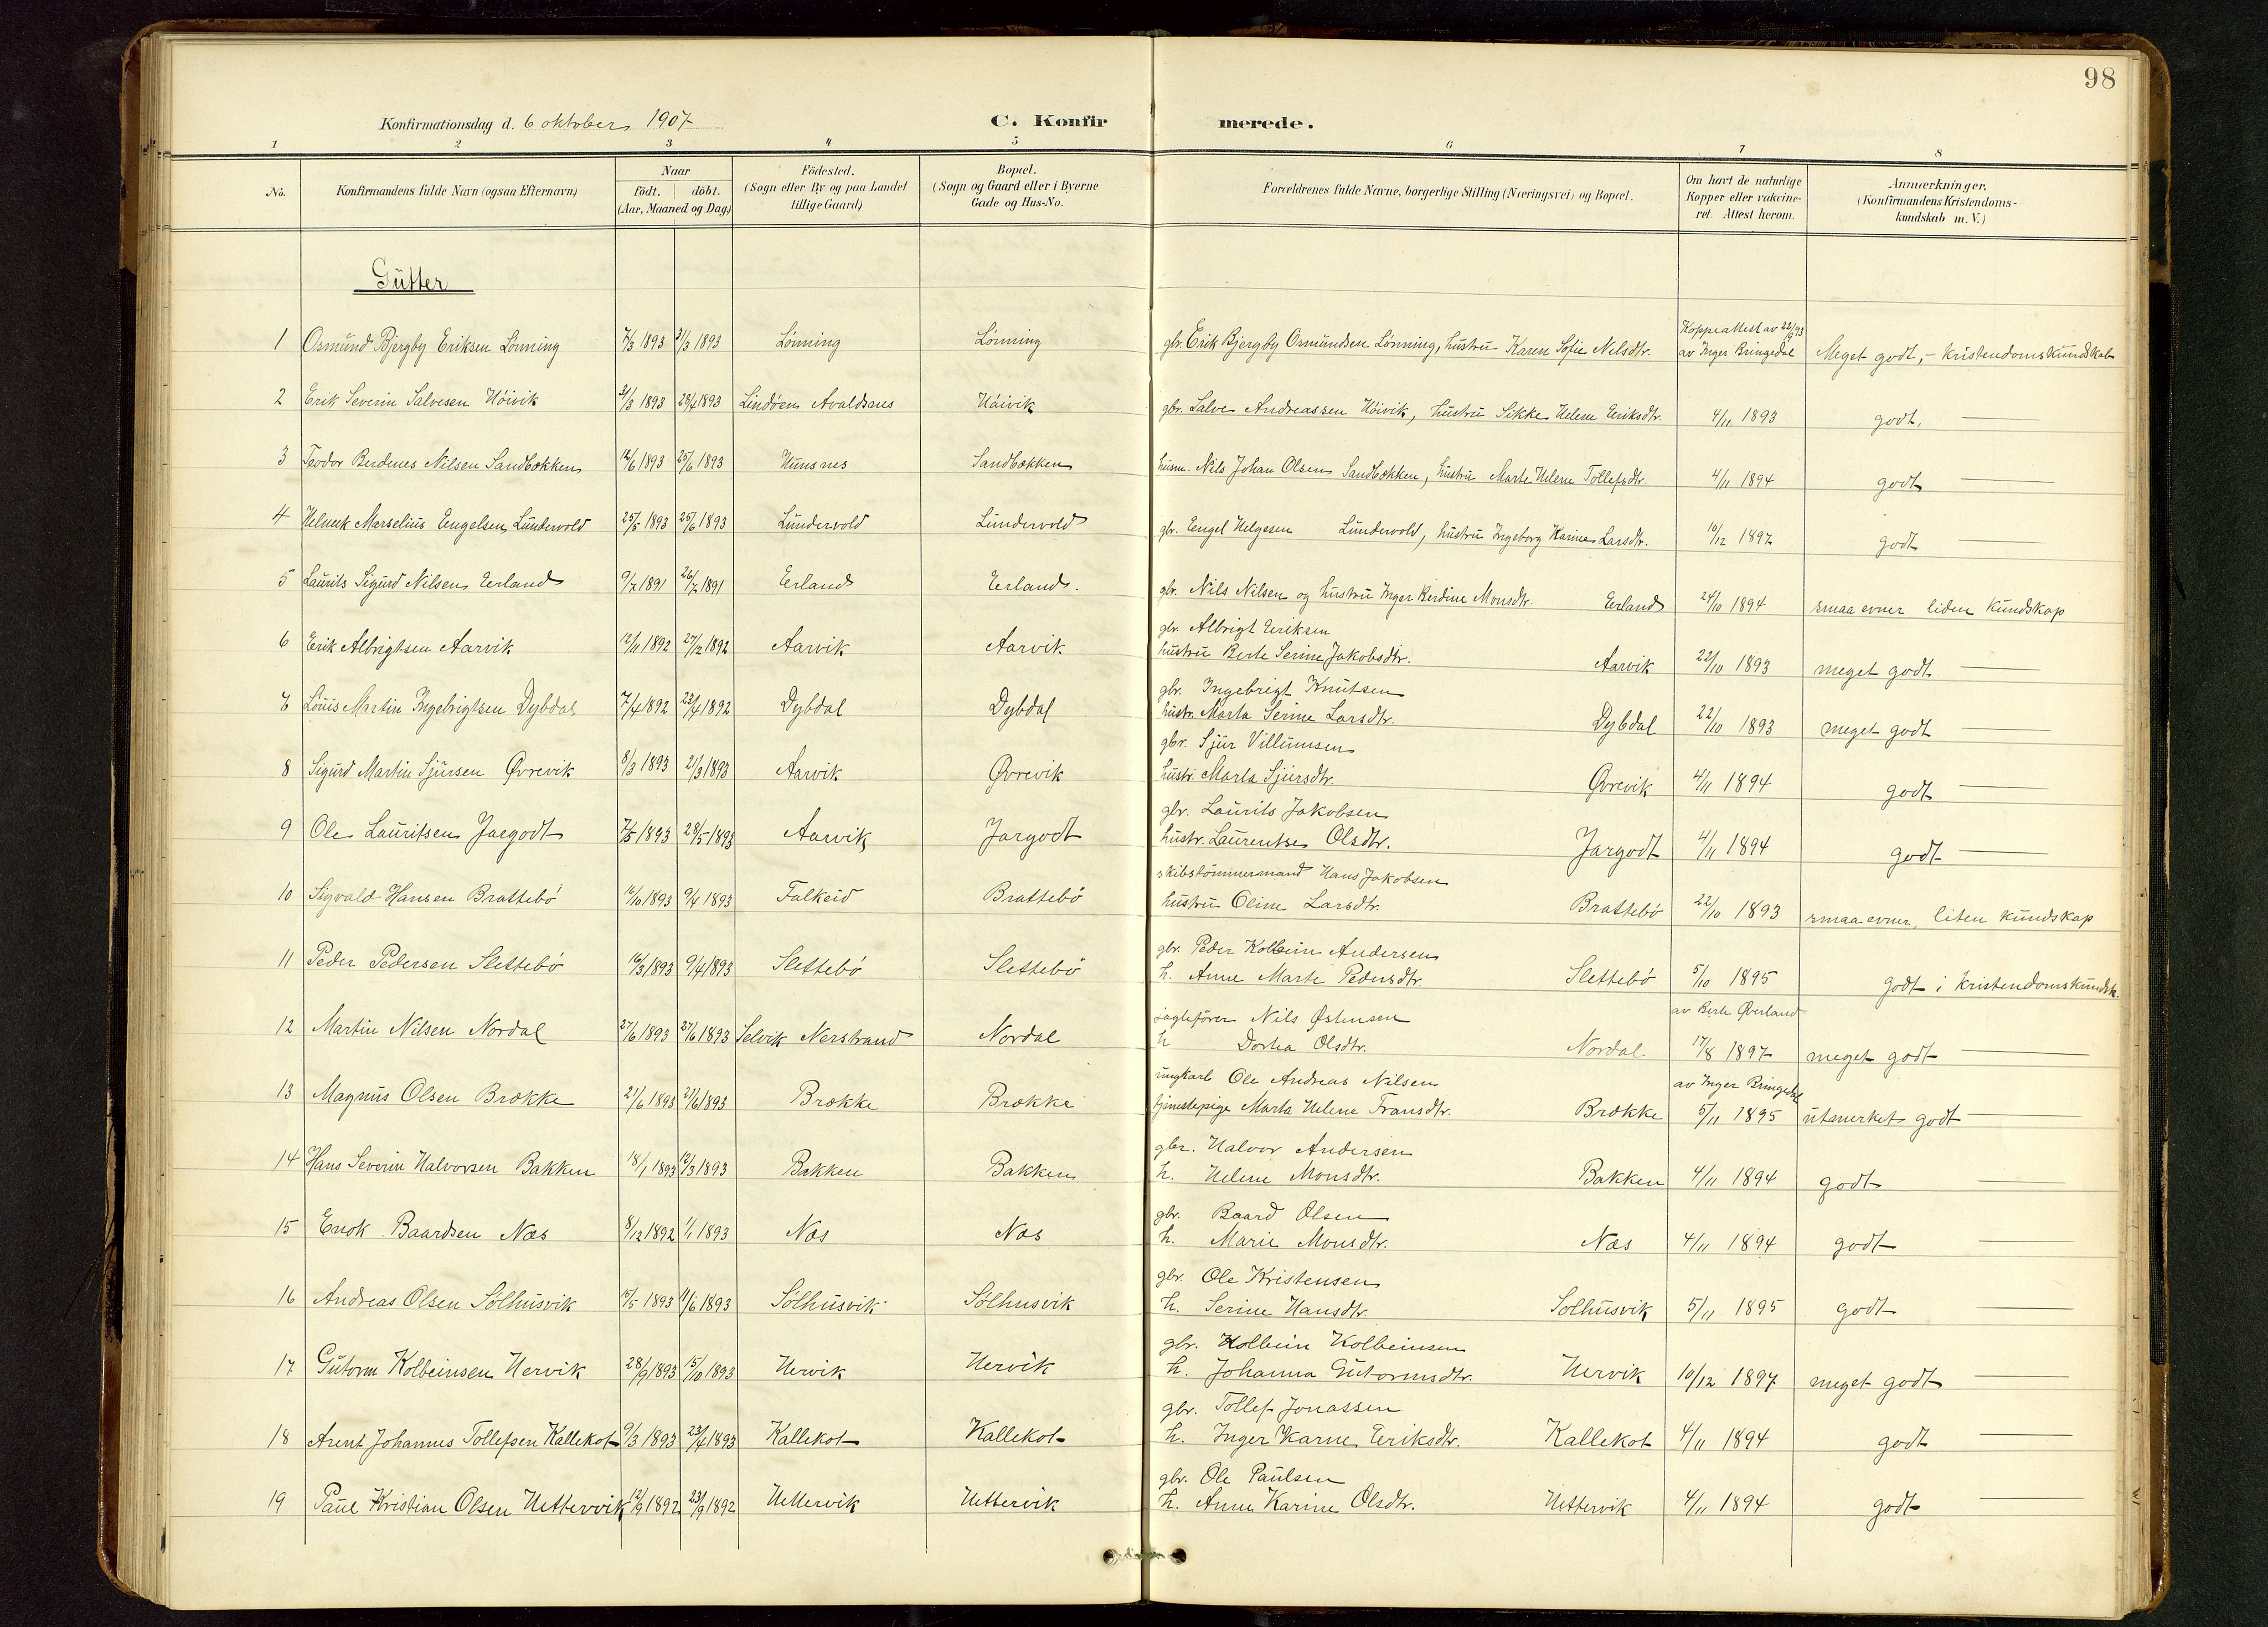 98
Konfirmationsdag d. 6 oktober 1907
C. Konfir merede.
1 2 3 4 5 6 7 8
No. Konfirmandens fulde Navn (ogsaa Efternavn) Naar født. døbt. (Aar, Maaned og Dag) Fødested. (Sogn eller By og paa Landet tillige Gaard) Bopæl. (Sogn og Gaard eller i Byerne Gade og Hus-No. Forældrenes fulde Navne, borgerlige Stilling (Næringsvei) og Bopæl. Om havt de naturlige Kopper eller vakcineret. Attest herom. Anmærkninger. (Konfirmandens Kristendomskundskab m. V.)
Gutter
1 Osmund Bjergby Eriksen Lønning 7/3 1893 31/3 1893 Lønning Lønning gbr. Erik Bjergby Osmundsen Lønning, hustru Karen Sofie Nilsdtr. Koppeattest av 22/9 93 av Inger Bringedal Meget godt, - kristendomskundskab
2 Erik Severin Salvesen Høivik 31/3 1893 23/4 1893 Lindøen Avaldsnes Høivik gbr. Salve Andreassen Høivik, hustru Sikke Helene Eriksdtr. 4/11 1893 godt,
3 Teodor Berdenes Nilsen Sandbækken 12/6 1893 25/6 1893 Hunsnes Sandbækken husm. Nils Johan Olsen Sandbækken, hustru Marte Helene Tollefsdtr. 4/11 1894 godt
4 Helmek Marselius Engelsen Lundervold 25/5 1893 25/6 1893 Lundervold Lundervold gbr. Engel Helgesen Lundervold, hustru Ingeborg Karine Larsdtr. 10/12 1897 godt
5 Laurits Sigurd Nilsen Erland 9/7 1891 26/7 1891 Erland Erland. gbr. Nils Nilsen og hustru Inger Berdine Monsdtr. Erland 24/10 1894 smaa evner liden kundskap
gbr. Albrigt Eriksen
6 Erik Albrigtsen Aarvik 12/11 1892 27/12 1892 Aarvik Aarvik hustru Berte Serine Jakobsdtr. Aarvik 22/10 1893 meget godt
gbr. Ingebrigt Knutsen
7 Louis Martin Ingebrigtsen Dybdal 7/4 1892 23/4 1892 Dybdal Dybdal hustr. Marta Serine Larsdtr. Dybdal 22/10 1893 meget godt
gbr. Sjur Villumsen
8 Sigurd Martin Sjursen Øvrevik 8/3 1893 21/3 1893 Aarvik Øvrevik hustr. Marta Sjursdtr. Øvrevik 4/11 1894 godt
gbr. Laurits Jakobsen
9 Ole Lauritsen Jargodt 7/5 1893 28/5 1893 Aarvik Jargodt hustr. Laurentse Olsdtr. Jargodt 4/11 1894 godt
skibstømmermand Hans Jakobsen
10 Sigvald Hansen Brattebø 1893 9/4 1893 Falkeid Brattebø hustru Oline Larsdtr. Brattebø 22/10 1893 smaa evner, liten kundskap
gbr. Peder Kolbein Andersen
11 Peder Pedersen Slettebø 16/3 1893 9/4 1893 Slettebø Slettebø h. Anne Marte Pedersdtr. Slettebø 5/10 1895 godt i kristendomskundsk.
jagtefører Nils Østensen av Berte Øverland
12 Martin Nilsen Nordal 27/6 1893 27/6 1893 Selvik Nerstrand Nordal h Dortea Olsdtr. Nordal. 17/8 1897 meget godt
ungkarl Ole Andreas Nilsen av Inger Bringedal
13 Magnus Olsen Brække 21/6 1893 21/6 1893 Brække Brække tjenestepige Marta Helene Fransdtr. Brække 5/11 1895 utmerket godt
gbr. Halvor Andersen
14 Hans Severin Halvorsen Bakken 18/1 1893 12/3 1893 Bakken Bakken h. Helene Monsdtr. Bakken 4/11 1894 godt
gbr. Baard Olsen
15 Enok Baardsen Næs 8/12 1892 1/1 1893 Næs Næs h. Marie Monsdtr. Næs 4/11 1894 godt
gbr. Ole Kristensen
16 Andreas Olsen Solhusvik 15/5 1893 11/6 1893 Solhusvik Solhusvik h. Serine Hansdtr. Solhusvik 5/11 1895 godt
gbr. Kolbein Kolbeinsen
17 Gutorm Kolbeinsen Hervik 28/9 1893 15/10 1893 Hervik Hervik h. Johanna Gutormsdtr. Hervik 10/12 1897 meget godt
gbr. Tollef Jonassen
18 Arent Johannes Tollefsen Kallekot 9/3 1893 23/4 1893 Kallekot Kallekot h. Inger Karine Eriksdtr. Kallekot 4/11 1894 godt
gbr. Ole Paulsen
19 Paul Kristian Olsen Hettervik 12/9 1892 23/9 1892 Hettervik Hettervik h. Anne Karine Olsdtr. Hettervik 4/11 1894 godt